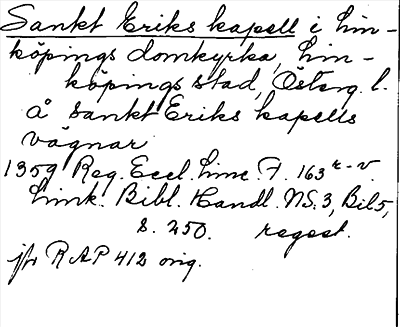 Sankt Eriks kapell i Lin-
köpings domkyrka, Lin-
köpings stad, Österg. l.
å sankt Eriks kapells
vägnar
1359 Reg. Eccl. Linc. F. 163 r-v.
Link. Bibl. Handl. NS. 3, Bil 5,
s. 250. regest.
jfr RAP 412 orig.